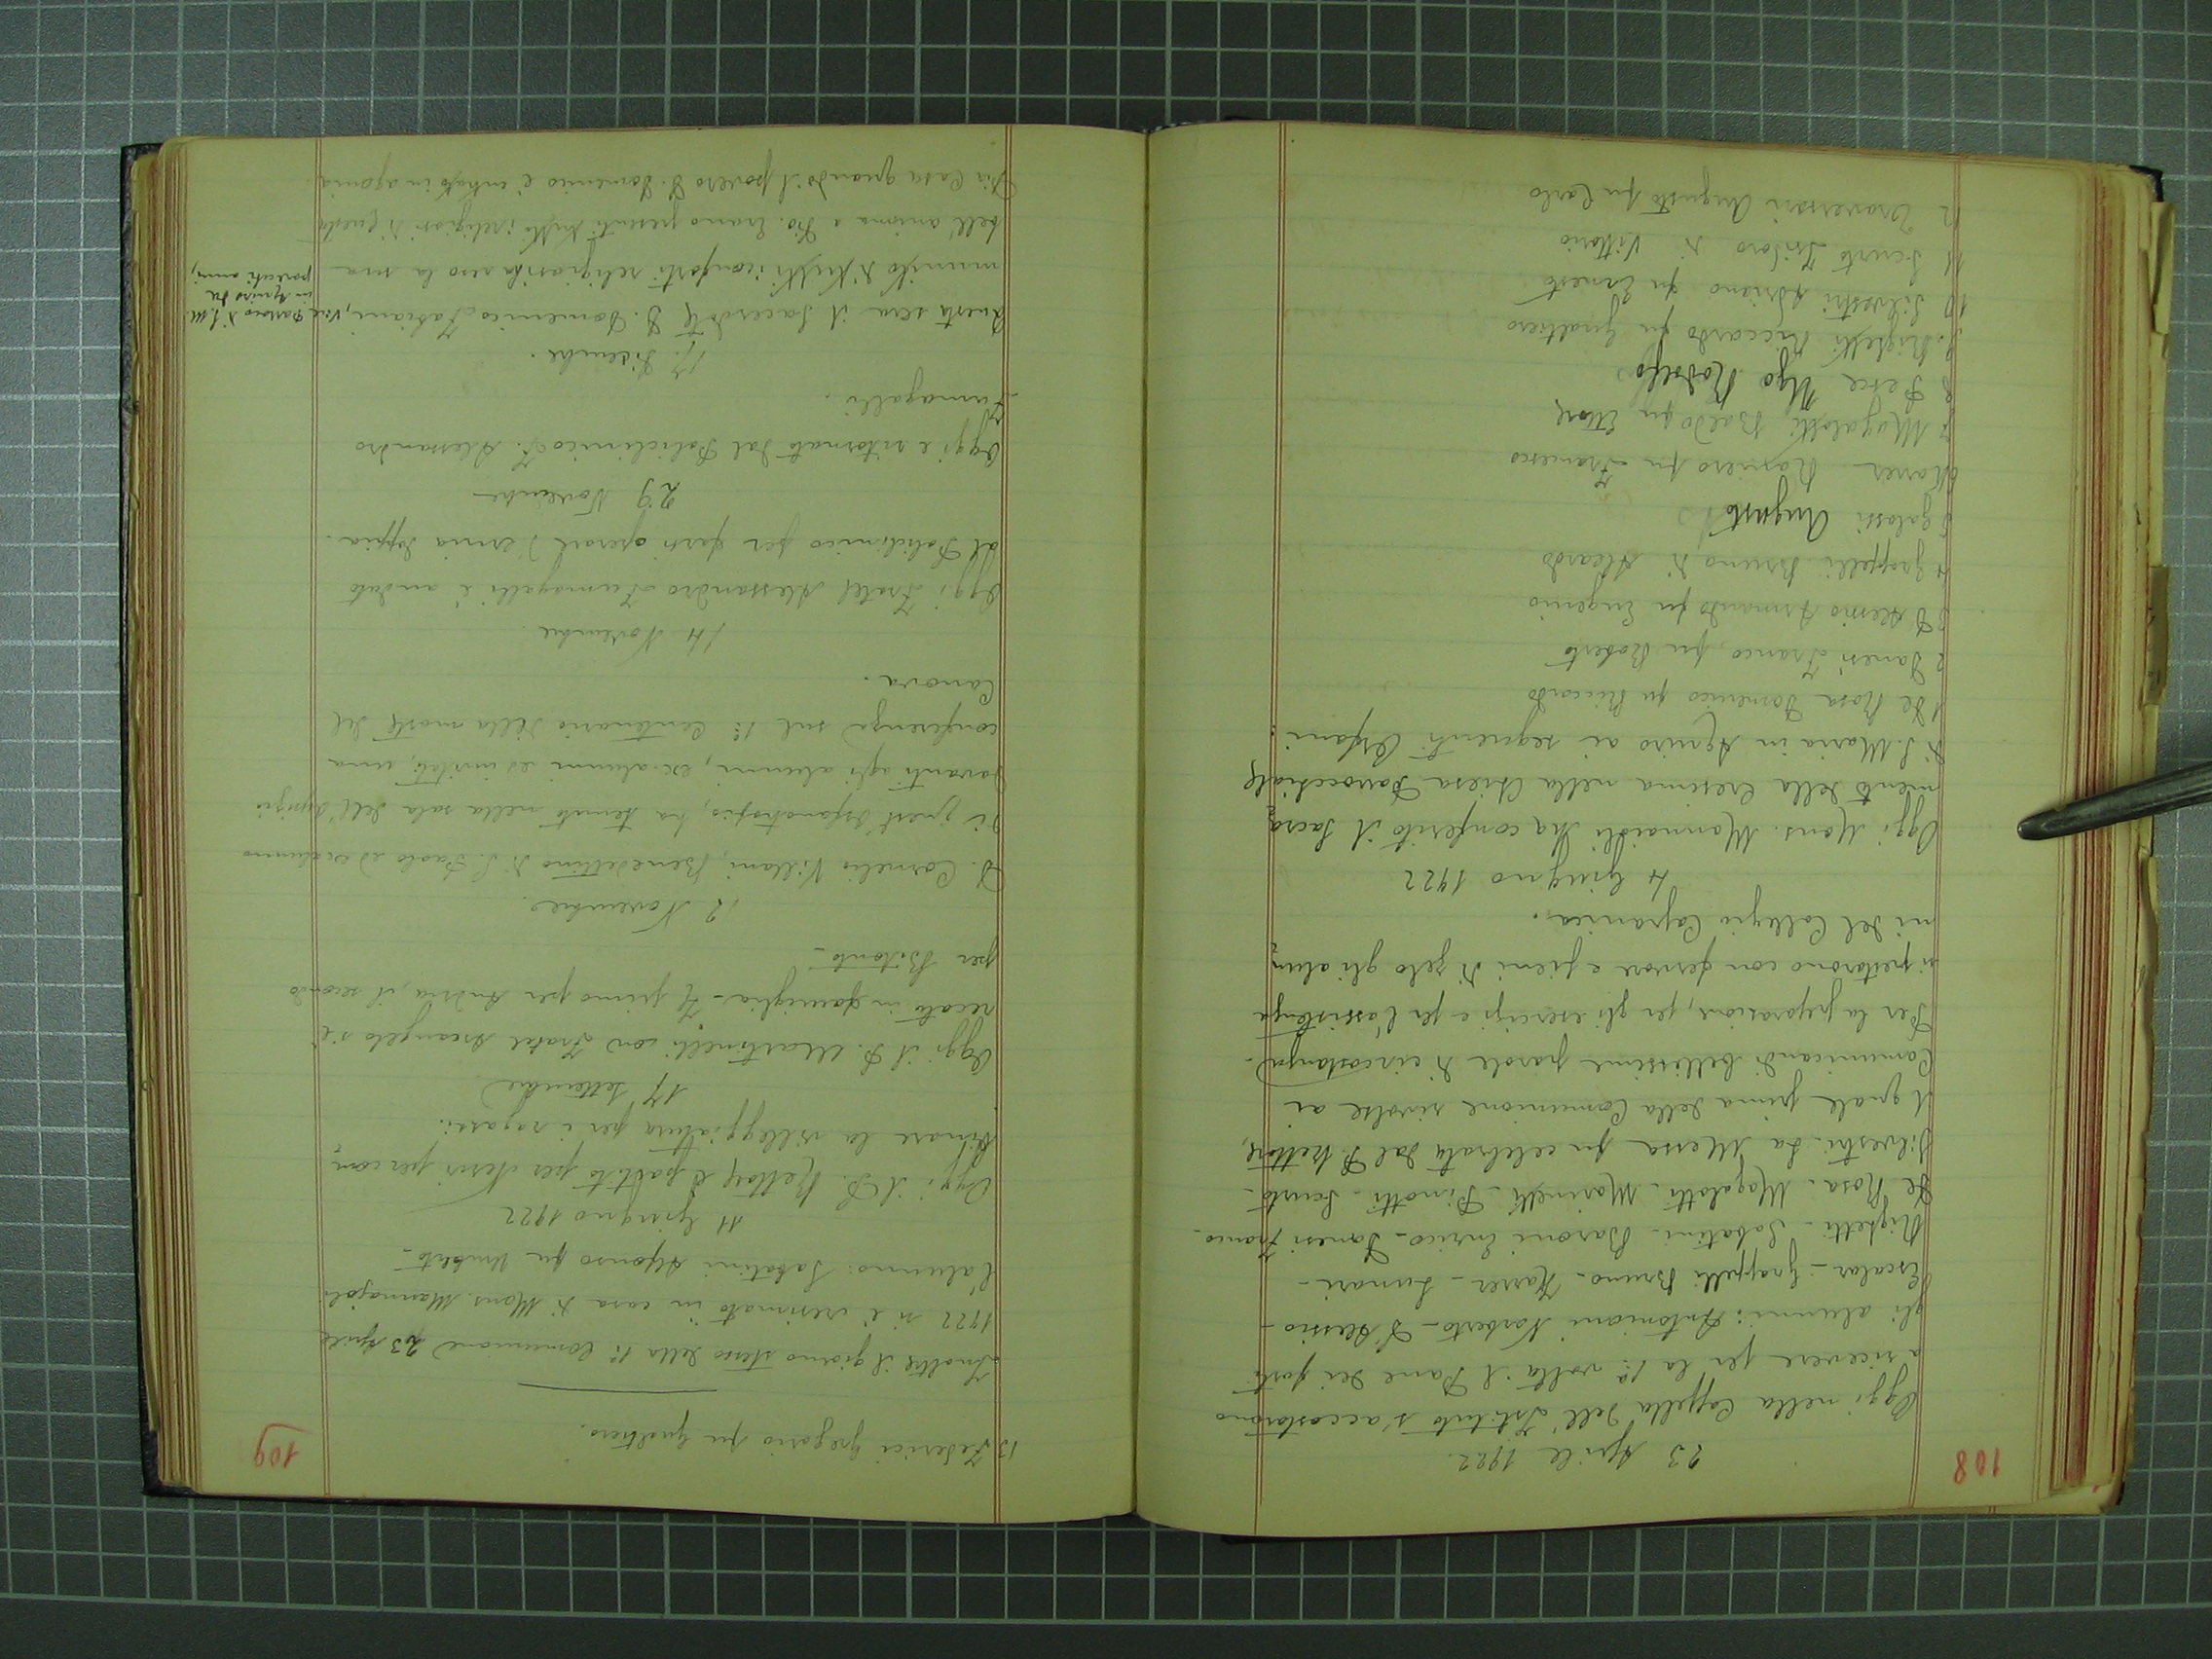 108
23 Aprile 1922.
Oggi nella Cappella dell'Istituto s'accostarono
a ricevere per la 1ª volta il Pane dei forti
gli alunni: Antonioni Norberto - D'Alessio -
Escalar - Grappelli Bruno - Karrer - Lunari -
Righetti - Sabatini - Baroni Enrico - Danesi Franco -
De Rosa - Magalotti - Marinelli - Pinotti - Scurto -
Silvestri. La Messa fu celebrata dal P. Rettore,
il quale prima della Comunione rivolse ai
Comunicandi bellissime parole di circostanza.
Per la preparazione, per gli esercizi e per l'assistenza
si prestarono con fervore e pieni di zelo gli alun=
ni del Collegio Capranica.
4 Giugno 1922
Oggi Mons. Mannaioli ha conferito il Sacra=
mento della Cresima nella Chiesa Parrocchiale
di S. Maria in Aquiro ai seguenti Orfani:
1 De Rosa Domenico fu Riccardo
2 Danesi Franco fu Roberto
3 D'Alessio Armando fu Eugenio
4 Grappelli Bruno di Alcardo
5 Galassi Augusto
6 Karrer Raniero fu Francesco
7 Magalotti Baldo fu Ettore
8 Pesce Ugo Rodolfo
9. Righetti Riccardo fu Gualtiero
10 Silvestri Adriano fu Ernesto
11 Scurto Isidoro di Vittorio
12 Traversari Augusto fu Carlo
109
13 Federici Gregorio fu Gualtiero.
Inoltre il giorno stesso della 1ª Comunione 23 Aprile
1922 si è cresimato in casa di Mons. Mannajoli
l'alunno: Sabatini Alfonso fu Umberto -
11 Giugno 1922
Oggi il P. Rettore è partito per Nervi per com=
binare la villeggiatura per i ragazzi.
17 Settembre
Oggi il P. Martinelli con Fratel Arcangelo s'è
recato in famiglia - Il primo per Andria, il secondo
per Bitonto -
12 Novembre.
D. Cornelio Villani, Benedettino di S. Paolo ed exalunno
di quest'Orfanotrofio, ha tenuto nella sala dell'Ospizio
davanti agli alunni, ex-alunni ed invitati, una
conferenza sul 1º Centenario della morte del
Canova.
14 Novembre.
Oggi Fratel Alessandro Fumagalli è andato
al Policlinico per farsi operare d'ernia doppia.
29 Novembre
Oggi è ritornato dal Policlinico F. Alessandro
Fumagalli.
17. Dicembre.
Questa sera il Sacerdote D. Domenico Fabiani, Vice Parroco di S. M.
in Aquiro da
parecchi anni,
munito di tutti i conforti religiosi ha reso la sua
bell'anima a Dio. Erano presenti tutti i religiosi di questa
Pia Casa quando il povero D. Domenico è entrato in agonia